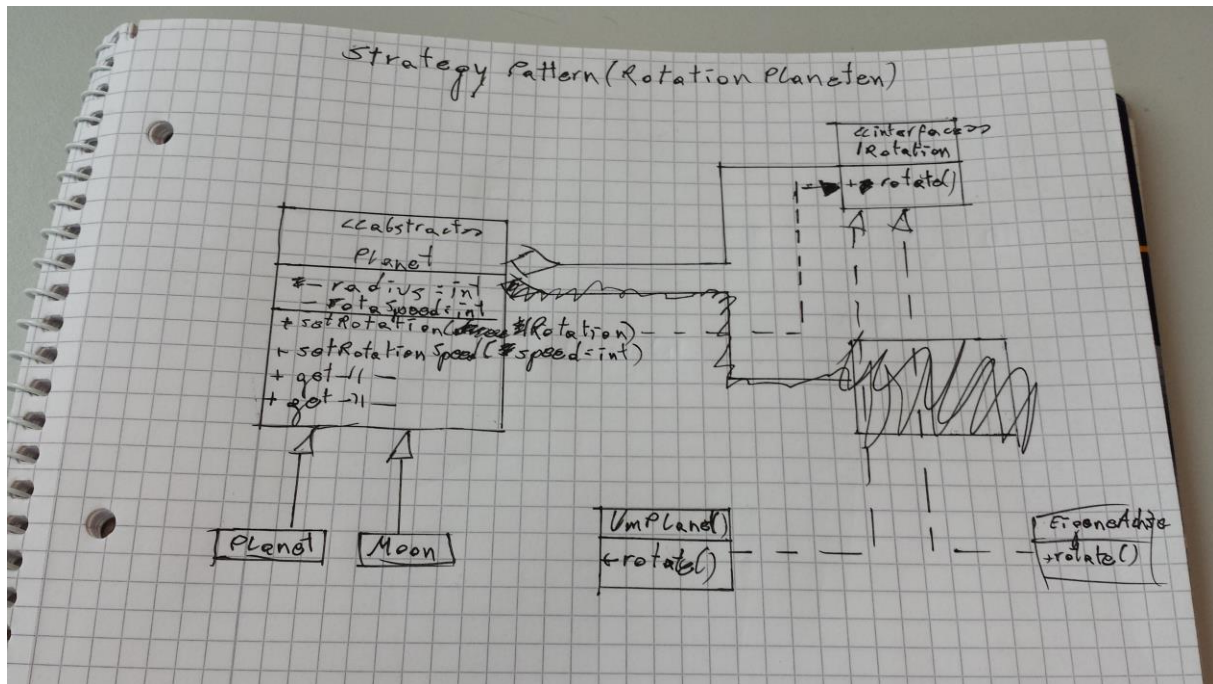 Strategy Pattern (Rotation Planeten)
<<interface>>
IRotation
+ rotate()
<<abstract>>
Planet
- radius = int
- rotaspeed = int
+ setRotation( IRotation)
+ setRotationSpeed( speed = int)
+ get -11-
+ get -11-
Planet
Moon
UmPlanet()
+ rotate()
EigeneAchse
+ rotate()